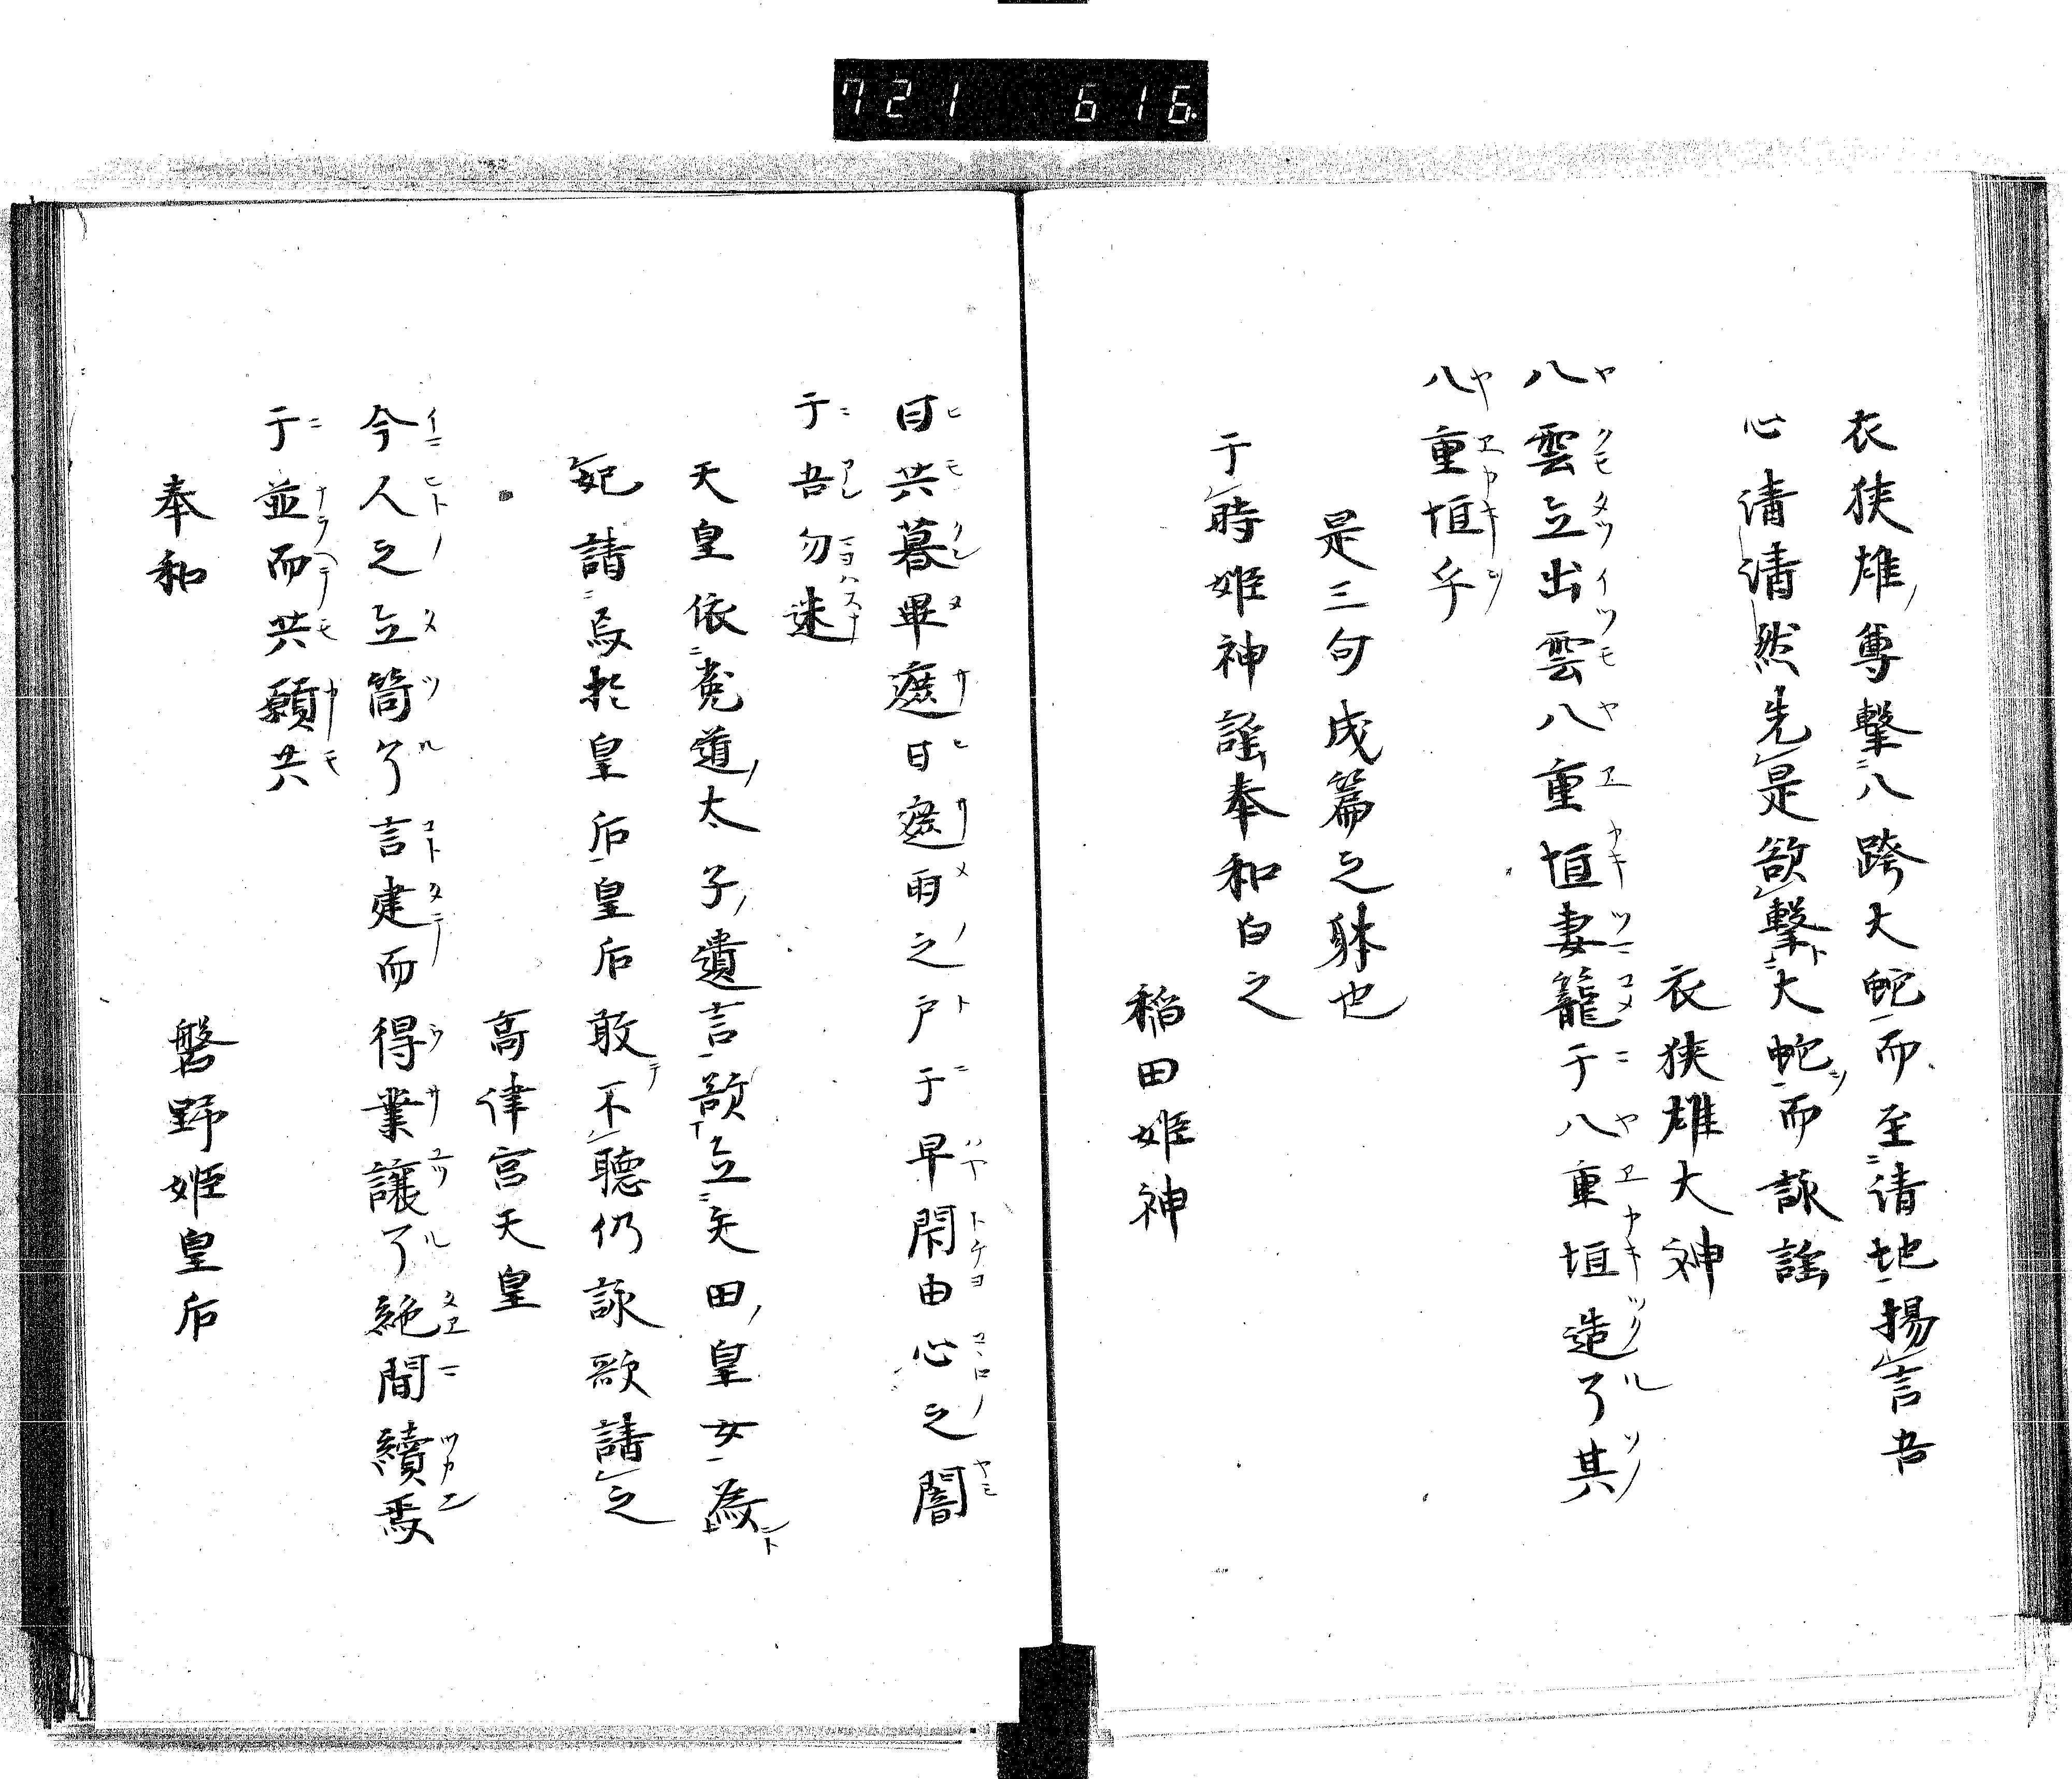 721 616
衣狭雄尊撃八跨大蛇而至清地揚言吾
心清清然先是欲撃大蛇而詠謡
衣狭雄大神
八雲立出雲八重垣妻籠于八重垣造了其
八重垣乎
是三句成篇之躰也
于時姫神謡奉和白之
稲田姫神
日共暮畢遮日遮雨之戸于早閇由心之闇
于吾勿迷
天皇依菟道太子遺言欲立矢田皇女為
妃請焉於皇后皇后敢不聴仍詠歌請之
高津宮天皇
今人之立筒了言建而得業譲了絶間續焉
于並而共願共
奉和
磐野姫皇后